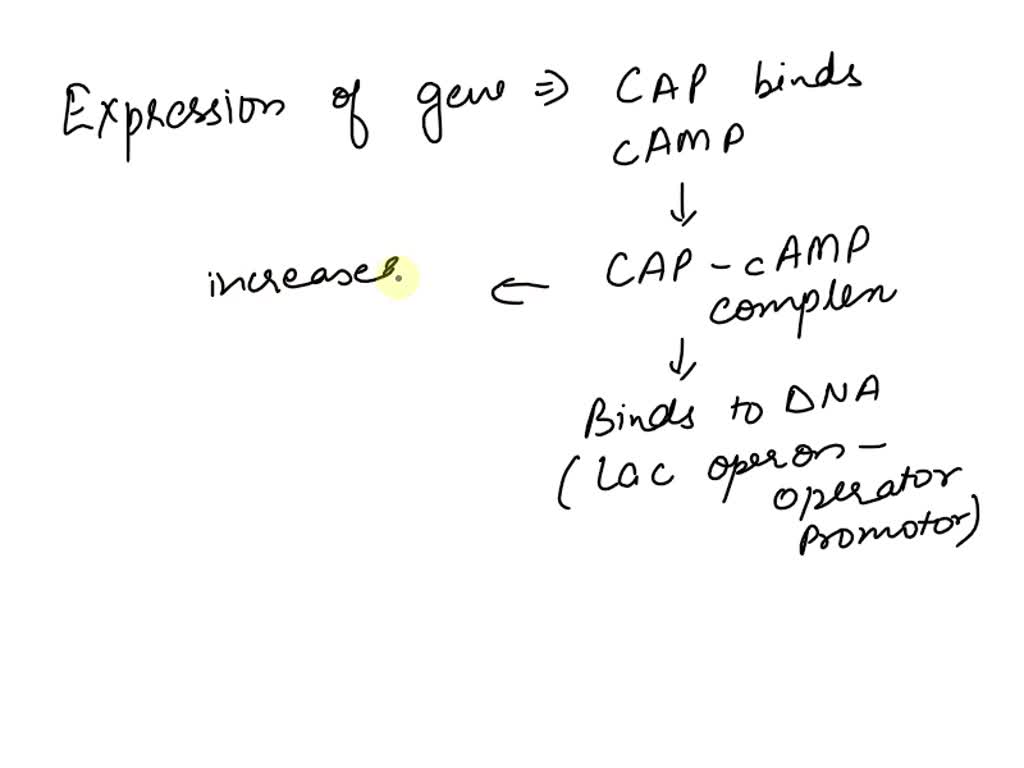 Expression of gene ⇒ CAP binds
cAMP
↓
increases. ← CAP - cAMP
complex
↓
Binds to DNA
(Lac operon -
operator
promotor)